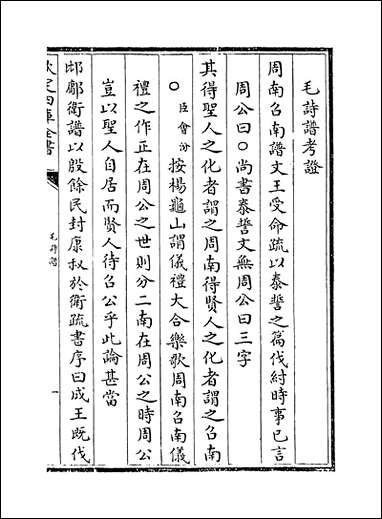 毛詩譜考證
周南召南譜文王受命疏以泰誓之篇伐紂時事已言
周公曰○尚書泰誓文無周公曰三字
其得聖人之化者謂之周南得賢人之化者謂之召南
○臣會汾按楊龜山謂儀禮大合樂歌周南召南儀
禮之作正在周公之世則分二南在周公之時周公
豈以聖人自居而賢人待召公乎此論甚當
邶鄘衛譜以殷餘民封康叔於衛疏書序曰成王既伐
欽定四庫全書
毛詩譜
一